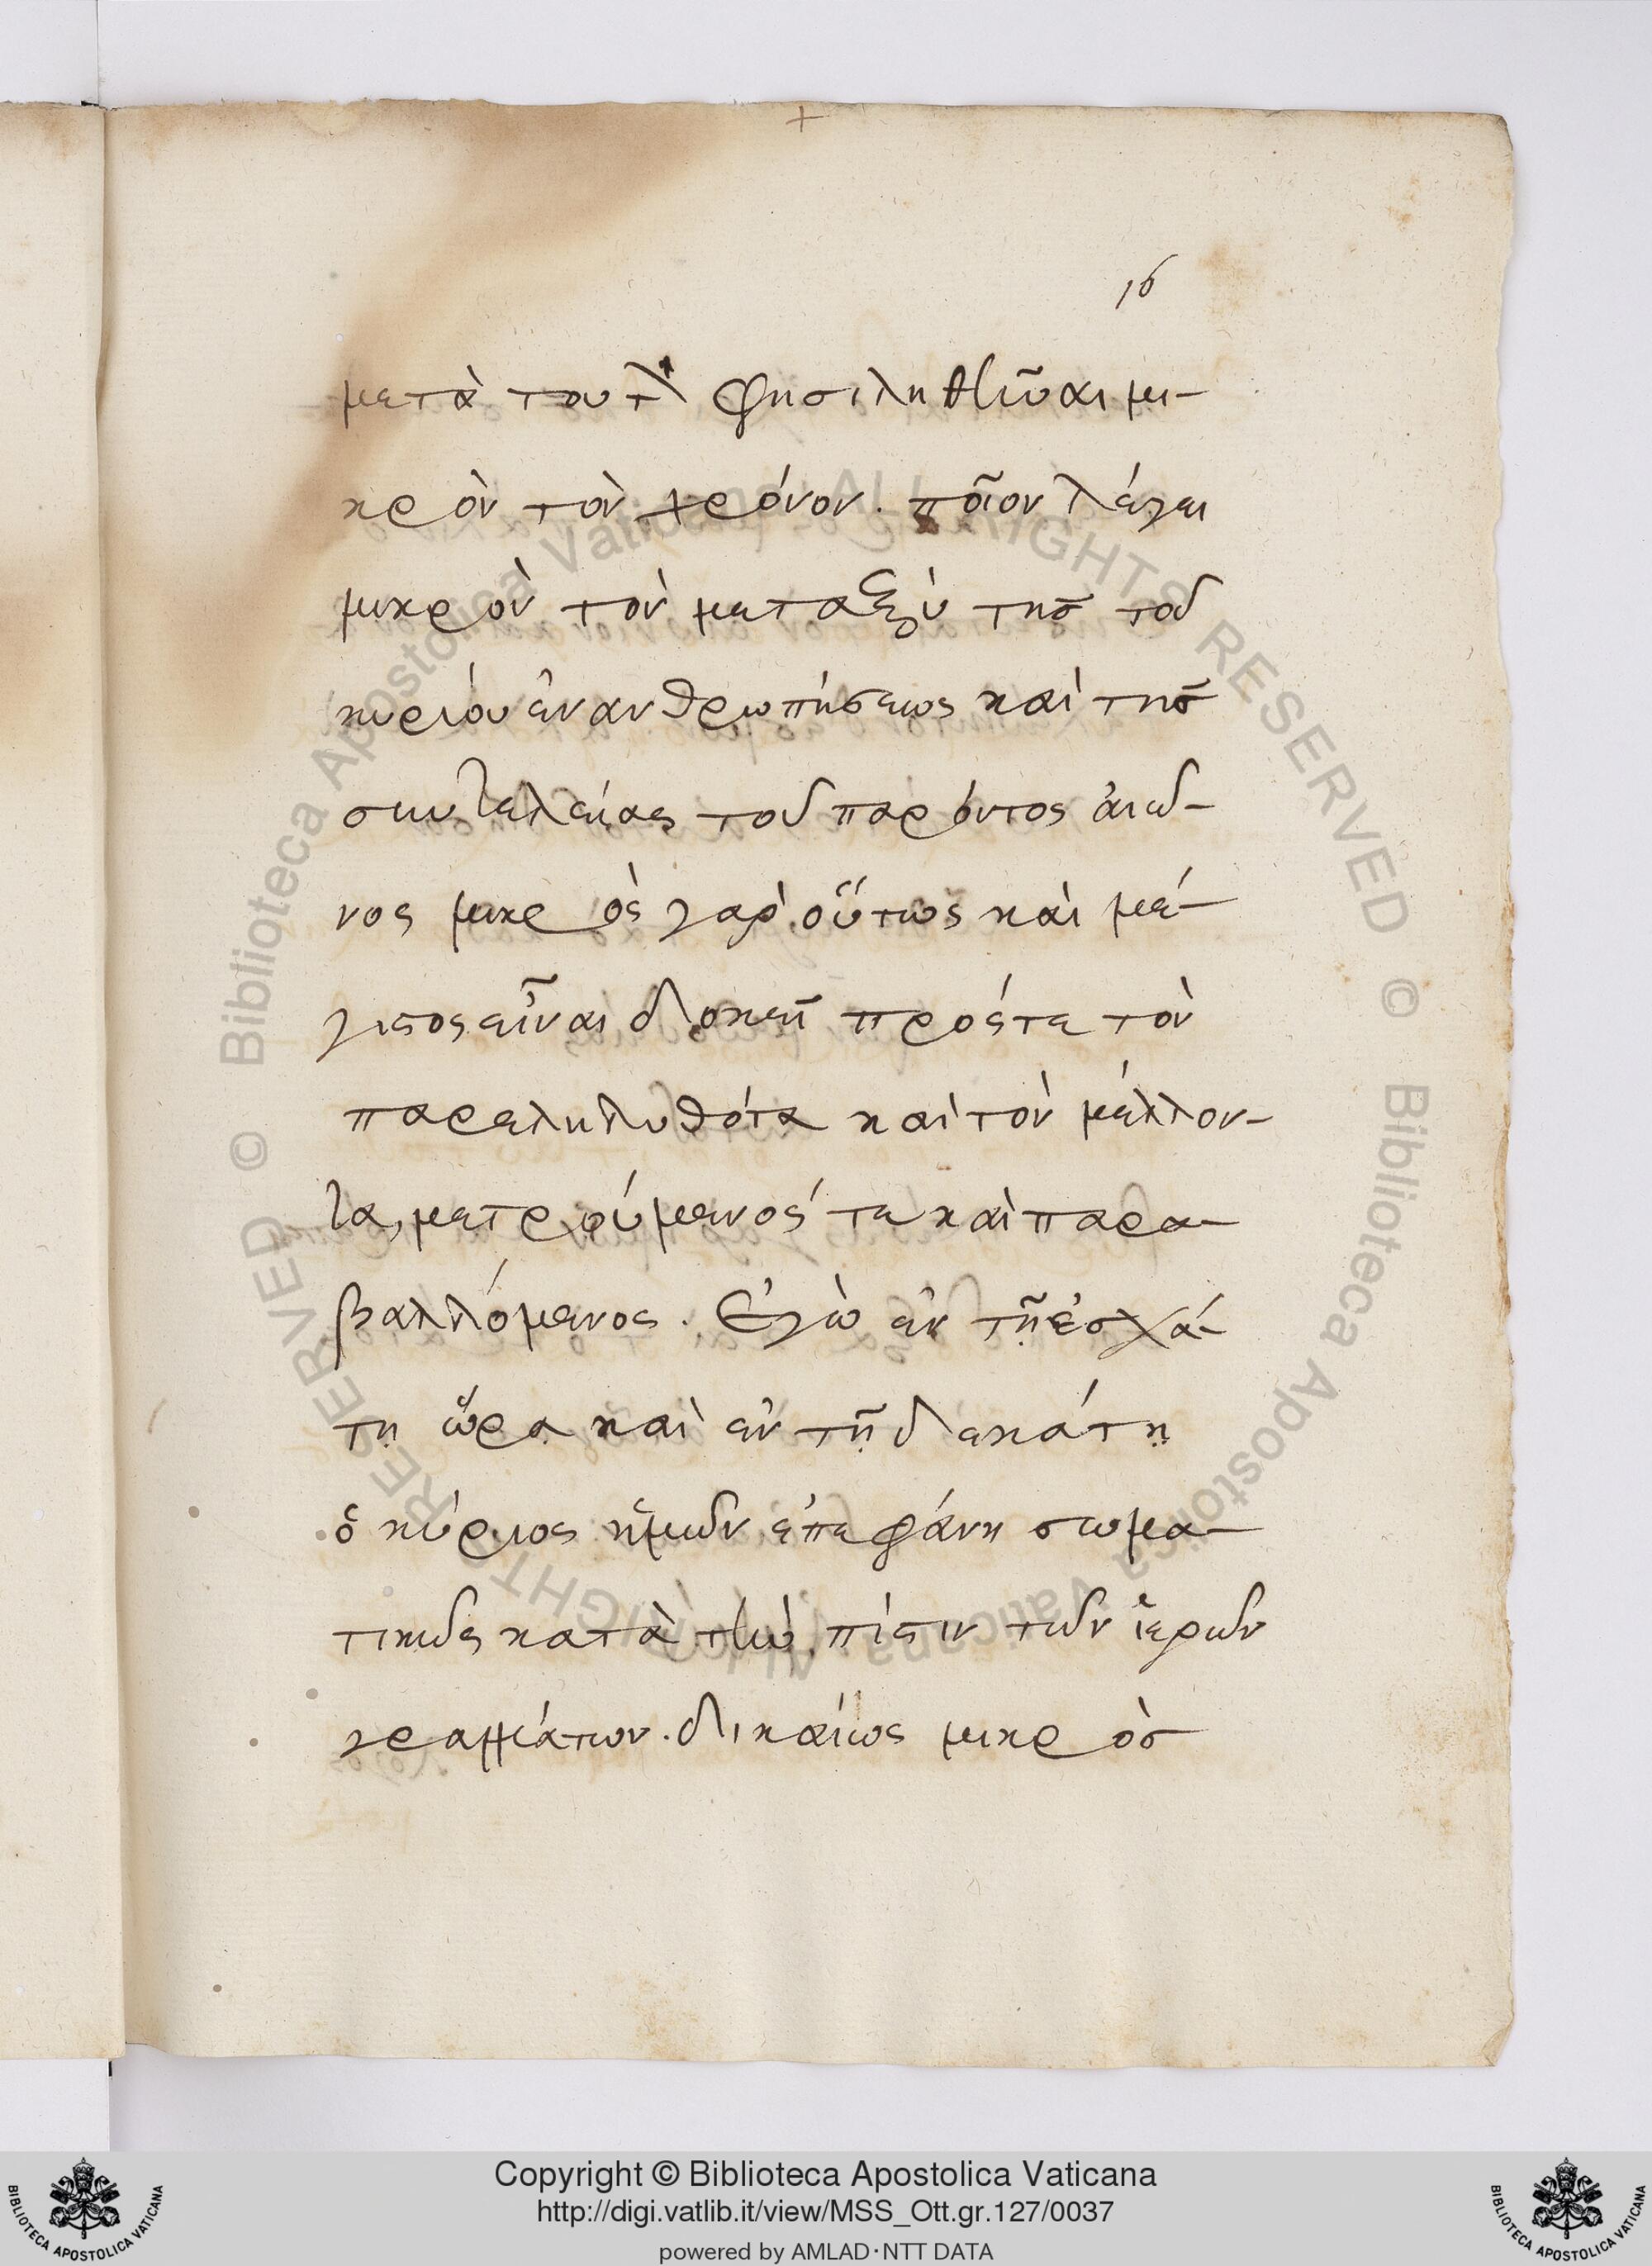 +
16
μετὰ τουτὶ φησι ληθῆναι μι-
κρὸν τὸν χρόνον. ποῖον λέγει
μικρὸν τὸν μεταξὺ τῆς τοῦ
κυρίου ἐνανθρωπήσεως καὶ τῆς
συντελείας τοῦ παρόντος αἰῶ-
νος μικρὸς γὰρ οὕτως καὶ μέ-
γιστος εἶναι δοκεῖ πρός τε τὸν
παρεληλυθότα καὶ τὸν μέλλον-
τα, μετρούμενός τε καὶ παρα-
βαλλόμενος. Ἐγὼ ἐν τῇ ἐσχά-
τῃ ὥρᾳ καὶ ἐν τῇ δεκάτῃ
ὁ κύριος ἡμῶν ἐπεφάνη σωμα-
τικῶς κατὰ τὴν πίστιν τῶν ἱερῶν
γραμμάτων. δικαίως μικρὸς
© Biblioteca Apostolica Vaticana ALL RIGHTS RESERVED © Biblioteca Apostolica Vaticana ALL RIGHTS RESERVED
Copyright © Biblioteca Apostolica Vaticana
http://digi.vatlib.it/view/MSS_Ott.gr.127/0037
powered by AMLAD·NTT DATA
BIBLIOTECA APOSTOLICA VATICANA
BIBLIOTECA APOSTOLICA VATICANA